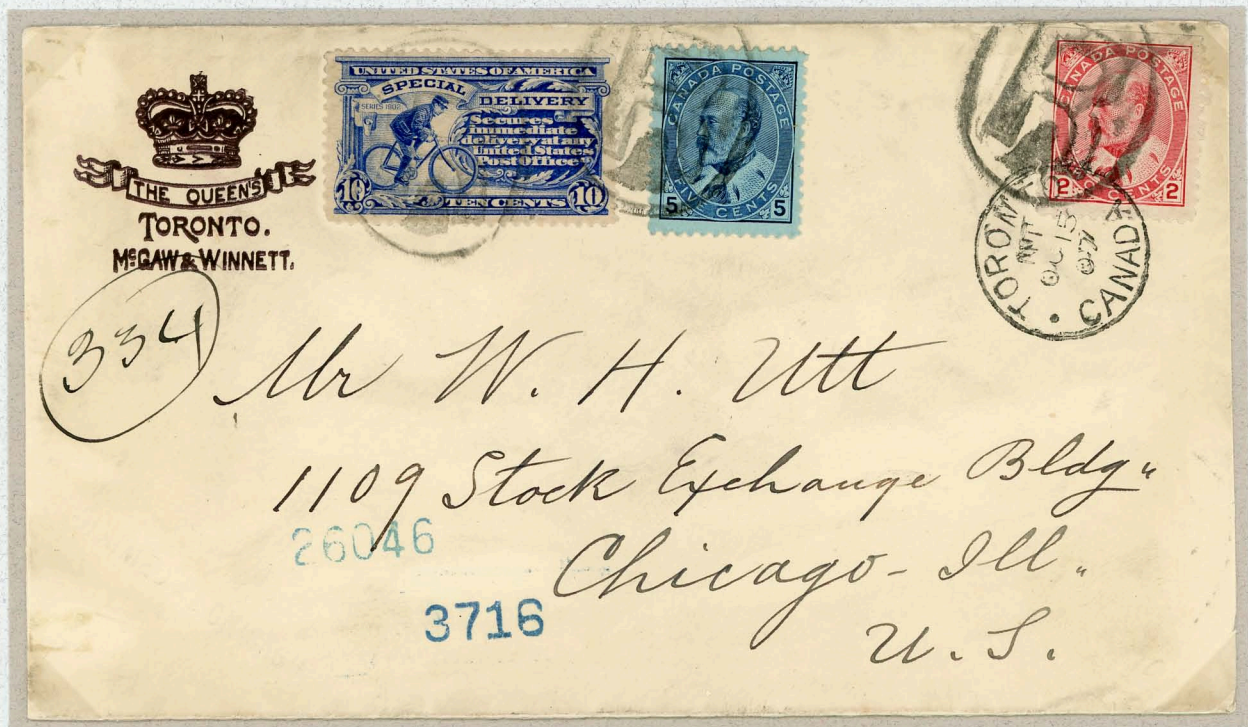 THE QUEEN'S
TORONTO.
McGAW & WINNETT.
UNITED STATES OF AMERICA
SPECIAL
DELIVERY
SERIES 1902
Secures
immediate
delivery at any
United States
Post Office
10 TEN CENTS 10
CANADA POSTAGE
5 FIVE CENTS 5
CANADA POSTAGE
2 CENTS 2
R
R
TORONTO CANADA
OC 15
07
334
Mr W. H. Utt
1109 Stock Exchange Bldg.
Chicago - Ill.
U. S.
26046
3716